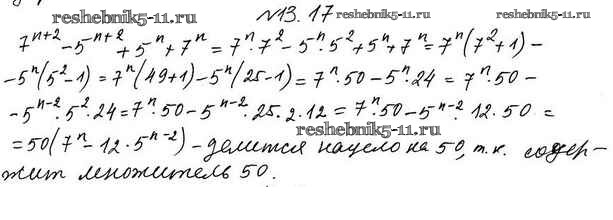 №13.17
reshebnik5-11.ru
reshebnik5-11.ru
7ⁿ⁺² - 5ⁿ⁺² + 5ⁿ + 7ⁿ = 7ⁿ·7² - 5ⁿ·5² + 5ⁿ + 7ⁿ = 7ⁿ(7²+1) -
-5ⁿ(5²-1) = 7ⁿ(49+1) - 5ⁿ(25-1) = 7ⁿ·50 - 5ⁿ·24 = 7ⁿ·50 -
-5ⁿ⁻²·5²·24 = 7ⁿ·50 - 5ⁿ⁻²·25·2·12 = 7ⁿ·50 - 5ⁿ⁻²·12·50 =
reshebnik5-11.ru
= 50(7ⁿ - 12·5ⁿ⁻²) - делится нацело на 50, т.к. содер-
жит множитель 50.
reshebnik5-11.ru